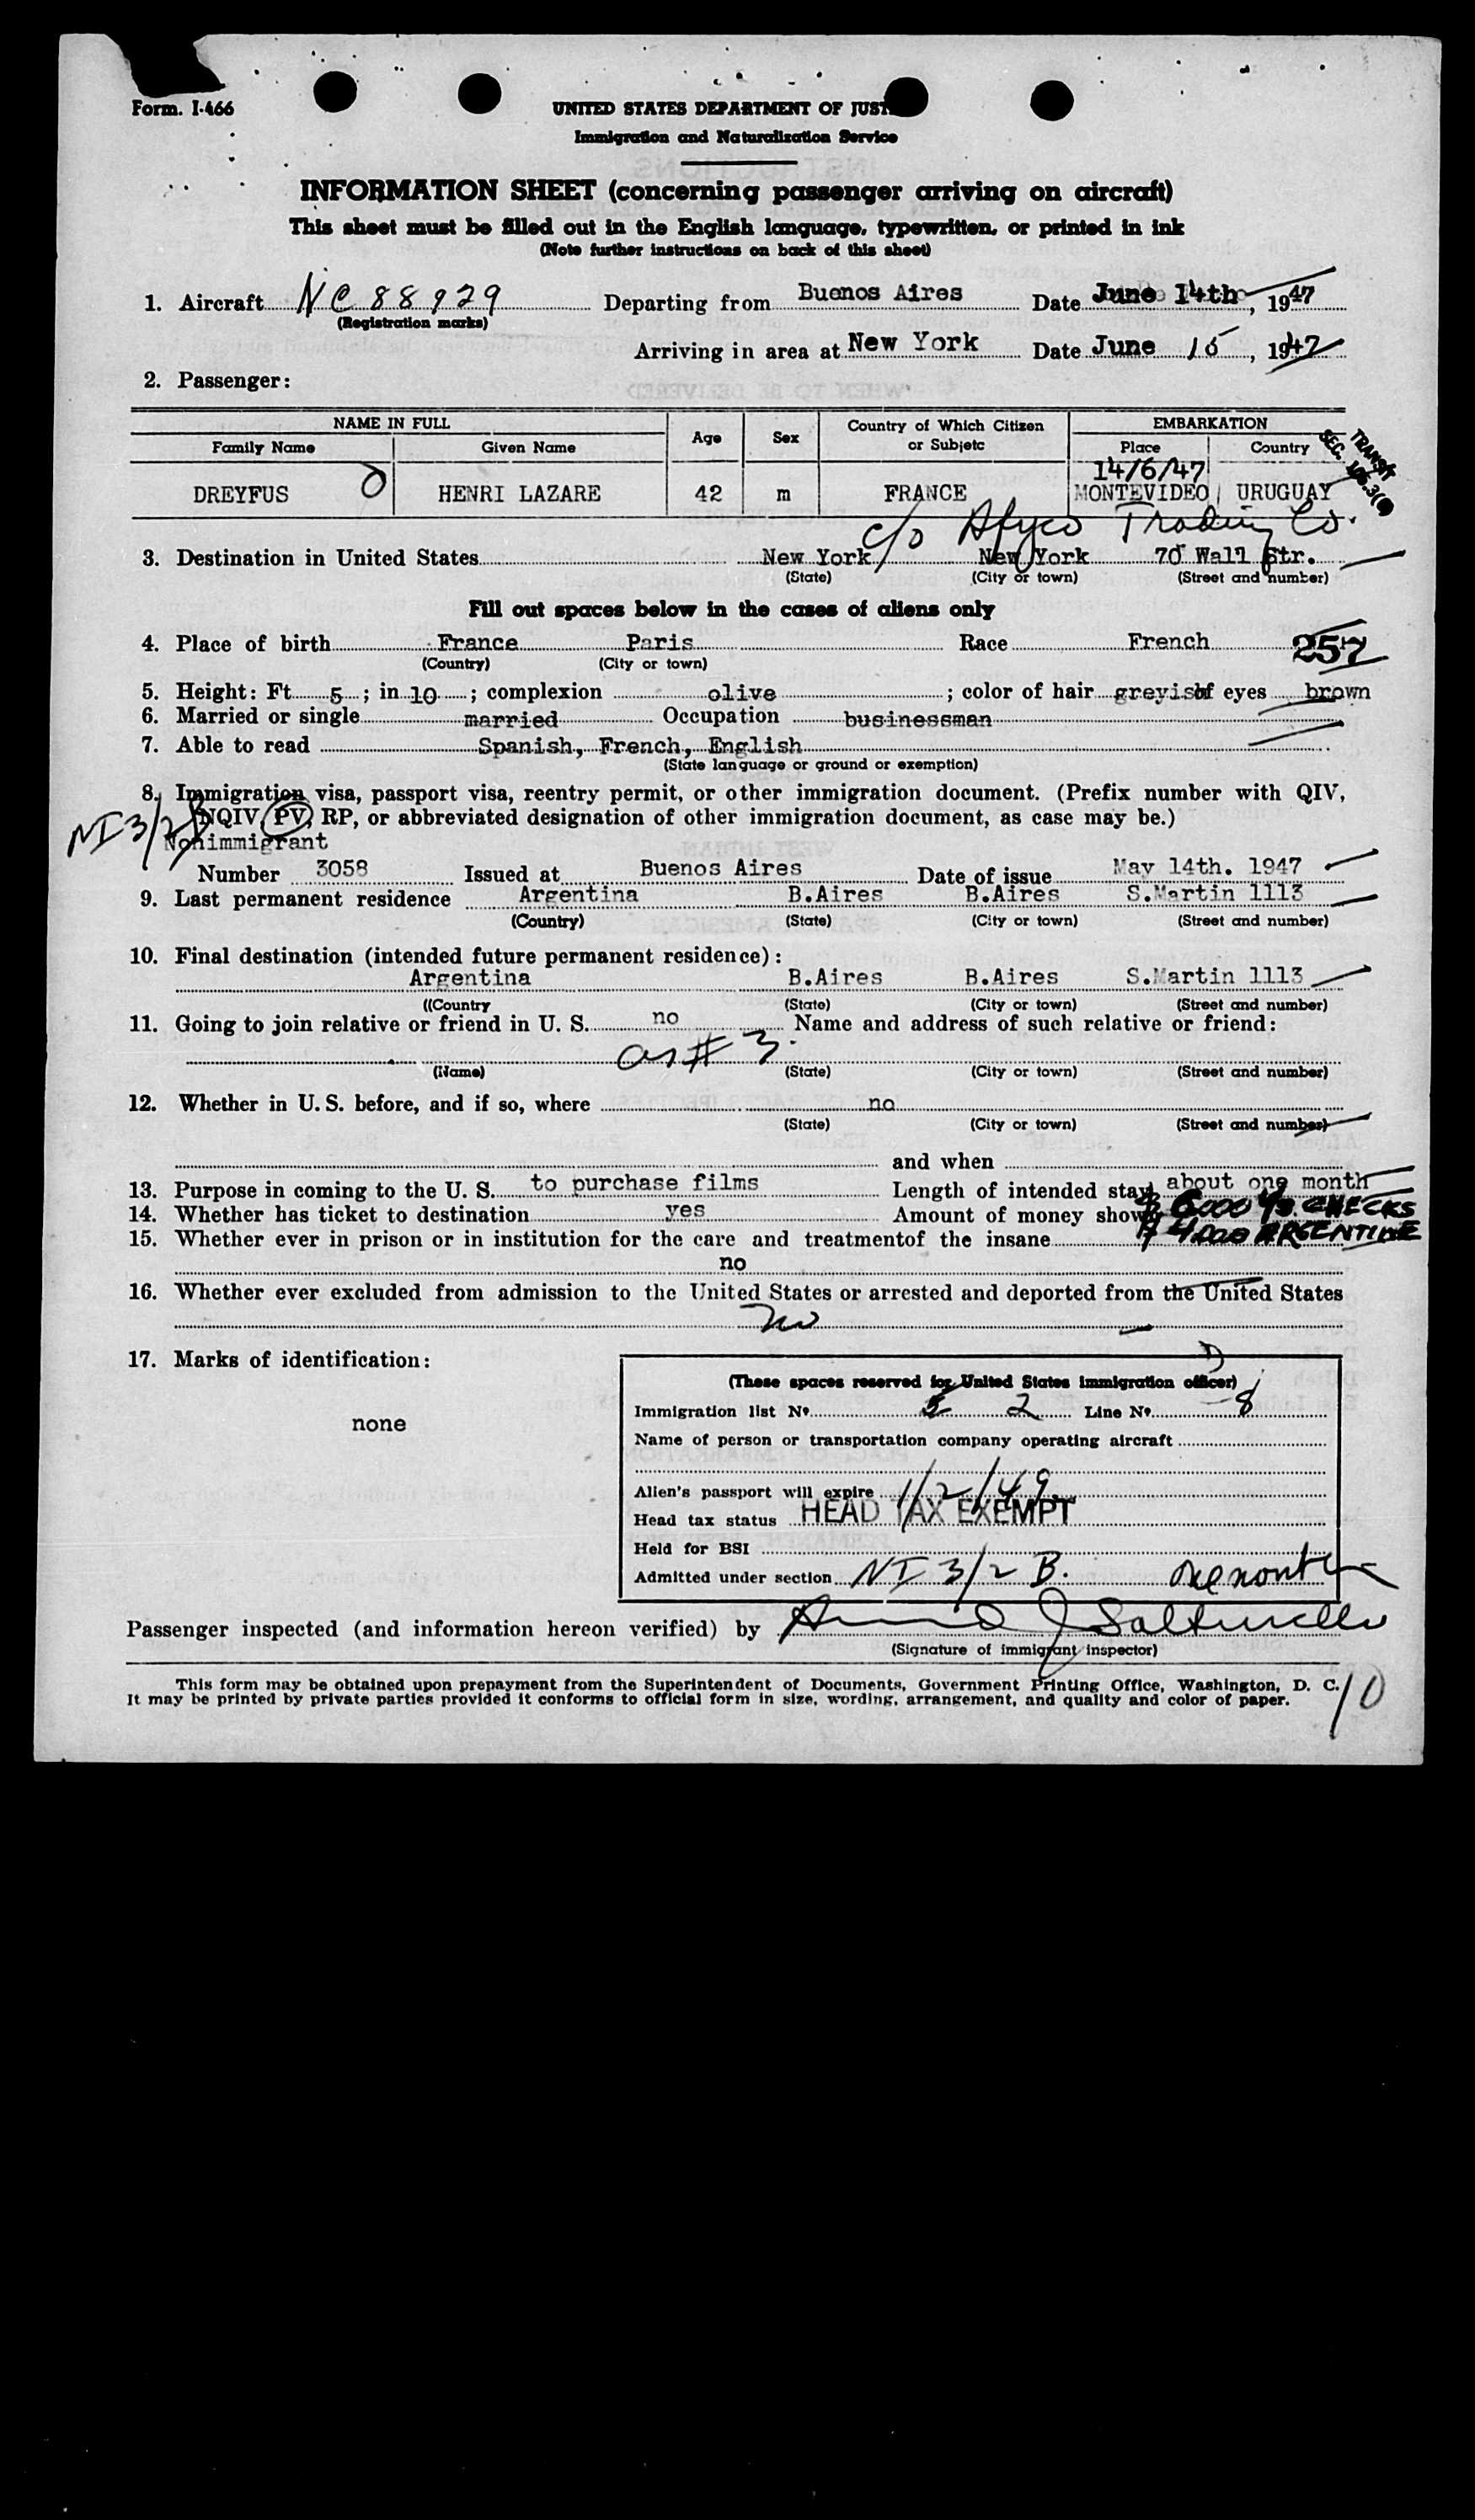 Form. I-466
UNITED STATES DEPARTMENT OF JUST
Immigration and Naturalization Service
INFORMATION SHEET (concerning passenger arriving on aircraft)
This sheet must be filled out in the English language, typewritten, or printed in ink
(Note further instructions on back of this sheet)
1. Aircraft NC 88929 Departing from Buenos Aires Date June 14th, 1947
(Registration marks)
Arriving in area at New York Date June 15, 1947
2. Passenger:
NAME IN FULL Age Sex Country of Which Citizen or Subjetc EMBARKATION
Family Name Given Name Place Country
TRANSIT
14/6/47
DREYFUS HENRI LAZARE 42 m FRANCE MONTEVIDEO URUGUAY
c/o Trading Co.
3. Destination in United States New York New York 70 Wall Str.
(State) (City or town) (Street and number)
Fill out spaces below in the cases of aliens only
4. Place of birth France Paris Race French 257
(Country) (City or town)
5. Height: Ft 5; in 10; complexion olive; color of hair greyish of eyes brown
6. Married or single married Occupation businessman
7. Able to read Spanish, French, English
(State language or ground or exemption)
8. Immigration visa, passport visa, reentry permit, or other immigration document. (Prefix number with QIV,
NQIV, PV, RP, or abbreviated designation of other immigration document, as case may be.)
NI 3/2 B
Nonimmigrant
Number 3058 Issued at Buenos Aires Date of issue May 14th. 1947
9. Last permanent residence Argentina B.Aires B.Aires S.Martin 1113
(Country) (State) (City or town) (Street and number)
10. Final destination (intended future permanent residence):
Argentina B.Aires B.Aires S.Martin 1113
((Country (State) (City or town) (Street and number)
11. Going to join relative or friend in U. S. no Name and address of such relative or friend:
as # 3.
(Name) (State) (City or town) (Street and number)
12. Whether in U. S. before, and if so, where no
(State) (City or town) (Street and number)
and when
13. Purpose in coming to the U. S. to purchase films Length of intended stay about one month
14. Whether has ticket to destination yes Amount of money shown $ 6000 CHECKS
15. Whether ever in prison or in institution for the care and treatmentof the insane $ 4000 ARGENTINE
no
16. Whether ever excluded from admission to the United States or arrested and deported from the United States
no
17. Marks of identification:
none
(These spaces reserved for United States immigration officer)
Immigration list No 2 Line No 8
Name of person or transportation company operating aircraft
Alien's passport will expire 1/2/49
Head tax status HEAD TAX EXEMPT
Held for BSI
Admitted under section NI 3/2 B. one month
Passenger inspected (and information hereon verified) by
(Signature of immigrant inspector)
This form may be obtained upon prepayment from the Superintendent of Documents, Government Printing Office, Washington, D. C.
It may be printed by private parties provided it conforms to official form in size, wording, arrangement, and quality and color of paper.
10